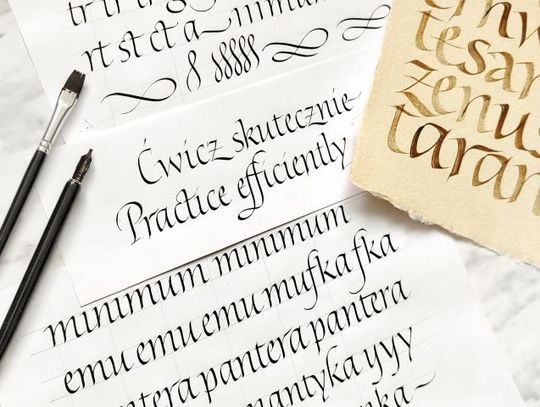 rt st ct a
Ćwicz skutecznie
Practice efficiently
minimum minimum
emu emu emu mufka fka
pantera pantera pantera
mantyka yyy
tesar
zenus
taran